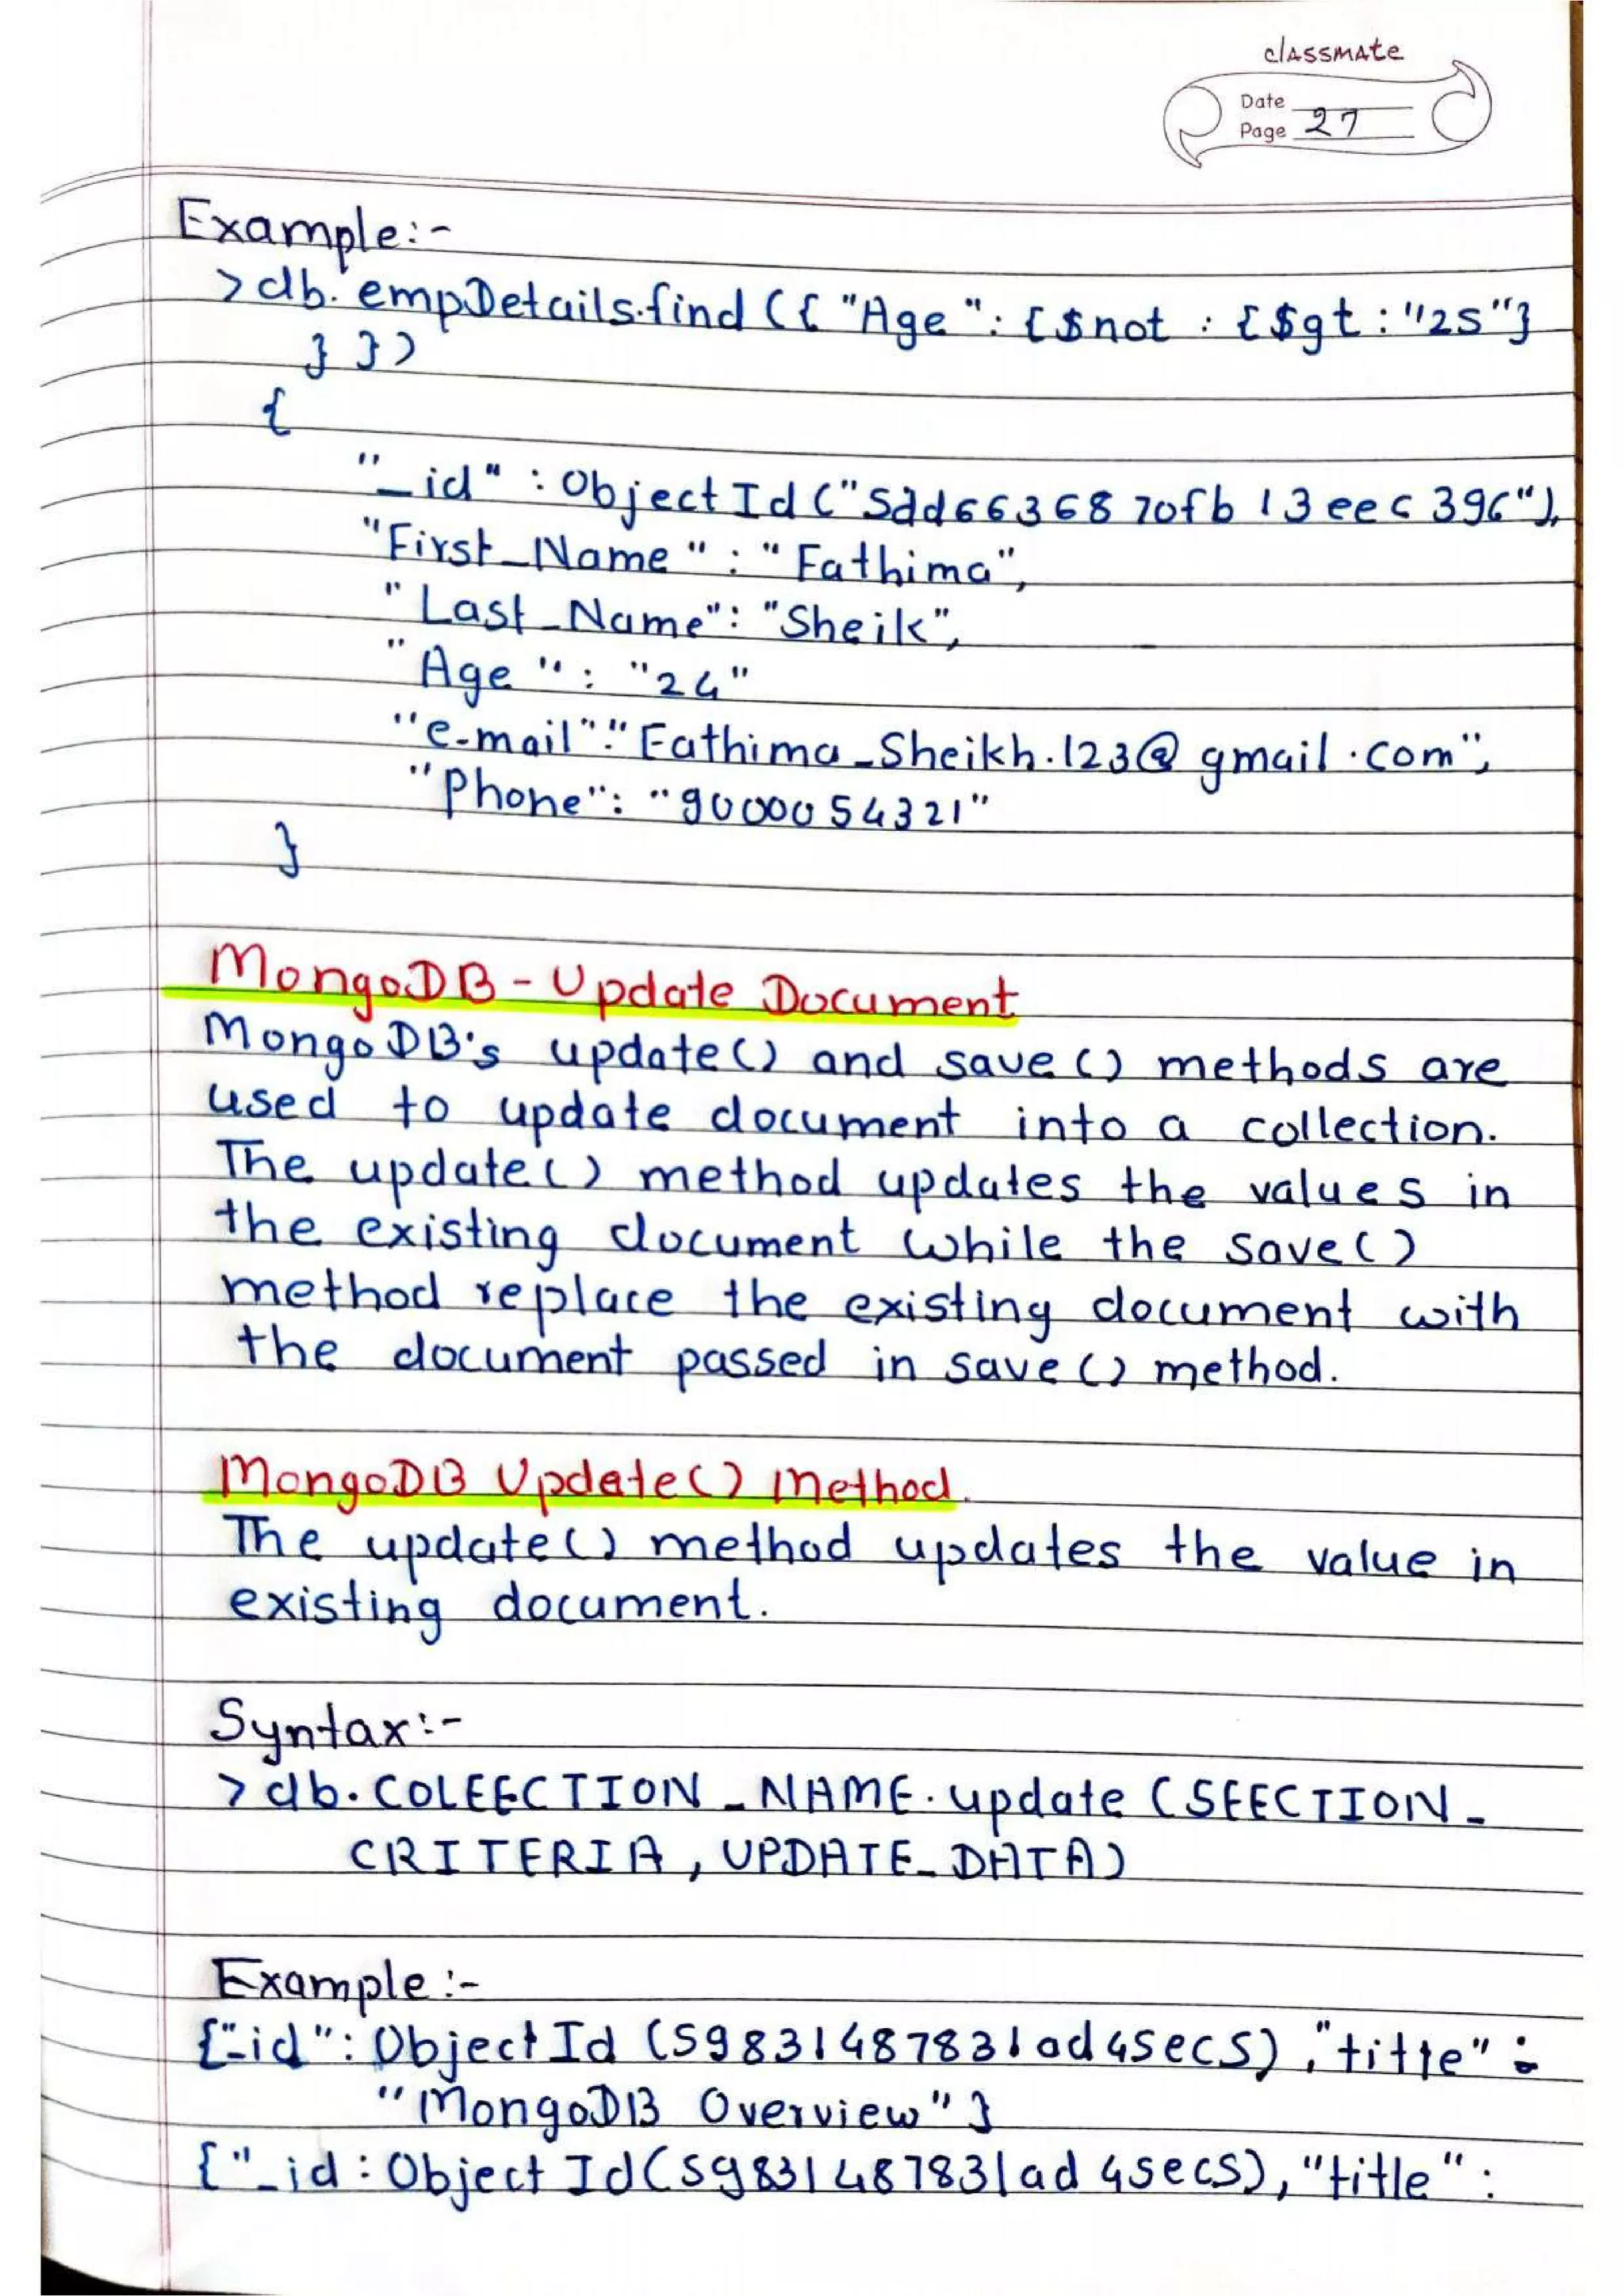 classmate
Date
Page 27
Example:-
>db.empDetails.find({ "Age": {$not : {$gt : "25"}
} })
{
"_id" : ObjectId("5dd6636870fb13eec396"),
"First_Name" : "Fathima",
"Last_Name": "Sheik",
"Age" : "24"
"e-mail":"Fathima_Sheikh.123@gmail.com",
"Phone": "9000054321"
}
MongoDB - Update Document
MongoDB's update() and save() methods are
used to update document into a collection.
The update() method updates the values in
the existing document while the save()
method replace the existing document with
the document passed in save() method.
MongoDB Update() Method.
The update() method updates the value in
existing document.
Syntax:-
>db.COLEECTION_NAME.update(SEECTION_
CRITERIA, UPDATE_DATA)
Example:-
{"_id": ObjectId(59831487831ad45ecs), "title" :
"MongoDB Overview"}
{"_id : ObjectId(59831487831ad45ecs), "title" :